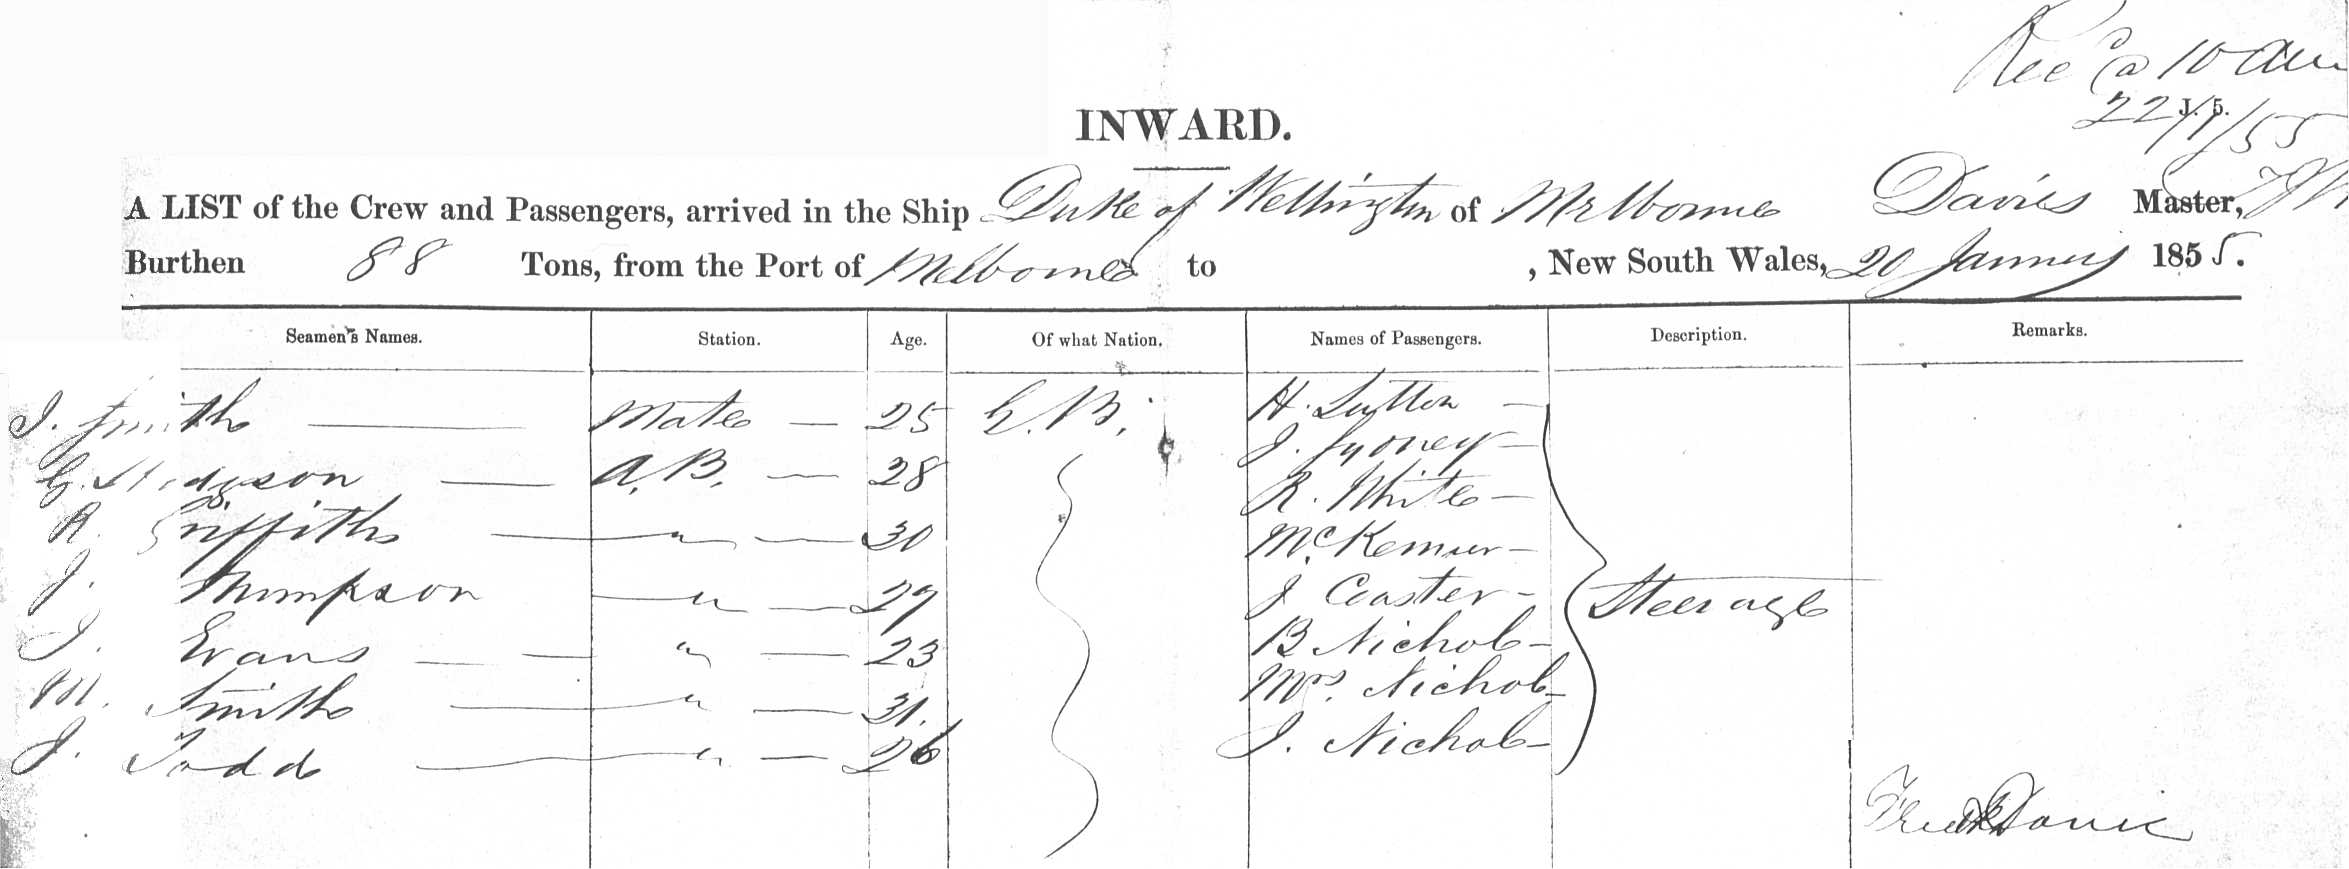 Rec @ 10 am
J. 5.
22/1/55
INWARD.
A LIST of the Crew and Passengers, arrived in the Ship Duke of Wellington of Melbourne Davies Master,
Burthen 88 Tons, from the Port of Melbourne to , New South Wales, 20 January 1855.
Seamen's Names. Station. Age. Of what Nation. Names of Passengers. Description. Remarks.
J. Smith Mate 25 G.B. H. Sutton
J. Sydney
G. Hodgson A.B. 28 R. White
R. Griffiths " 30 Mc
J. Thompson " 29 J Coaster Steerage
J. Evans " 23 B Nichols
M. Smith " 31. Mrs. Nichols
J. Todd " 26 J. Nichols
Fredk Davies